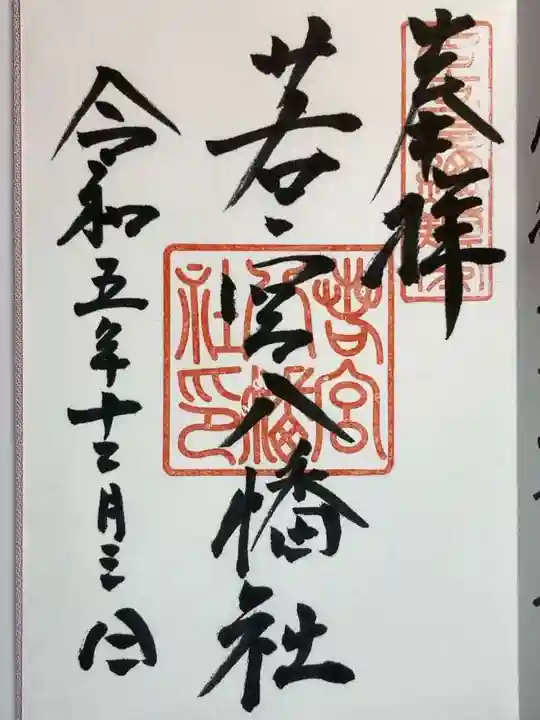 奉拝
若宮八幡社
若宮
八幡
社印
令和五年十二月三日